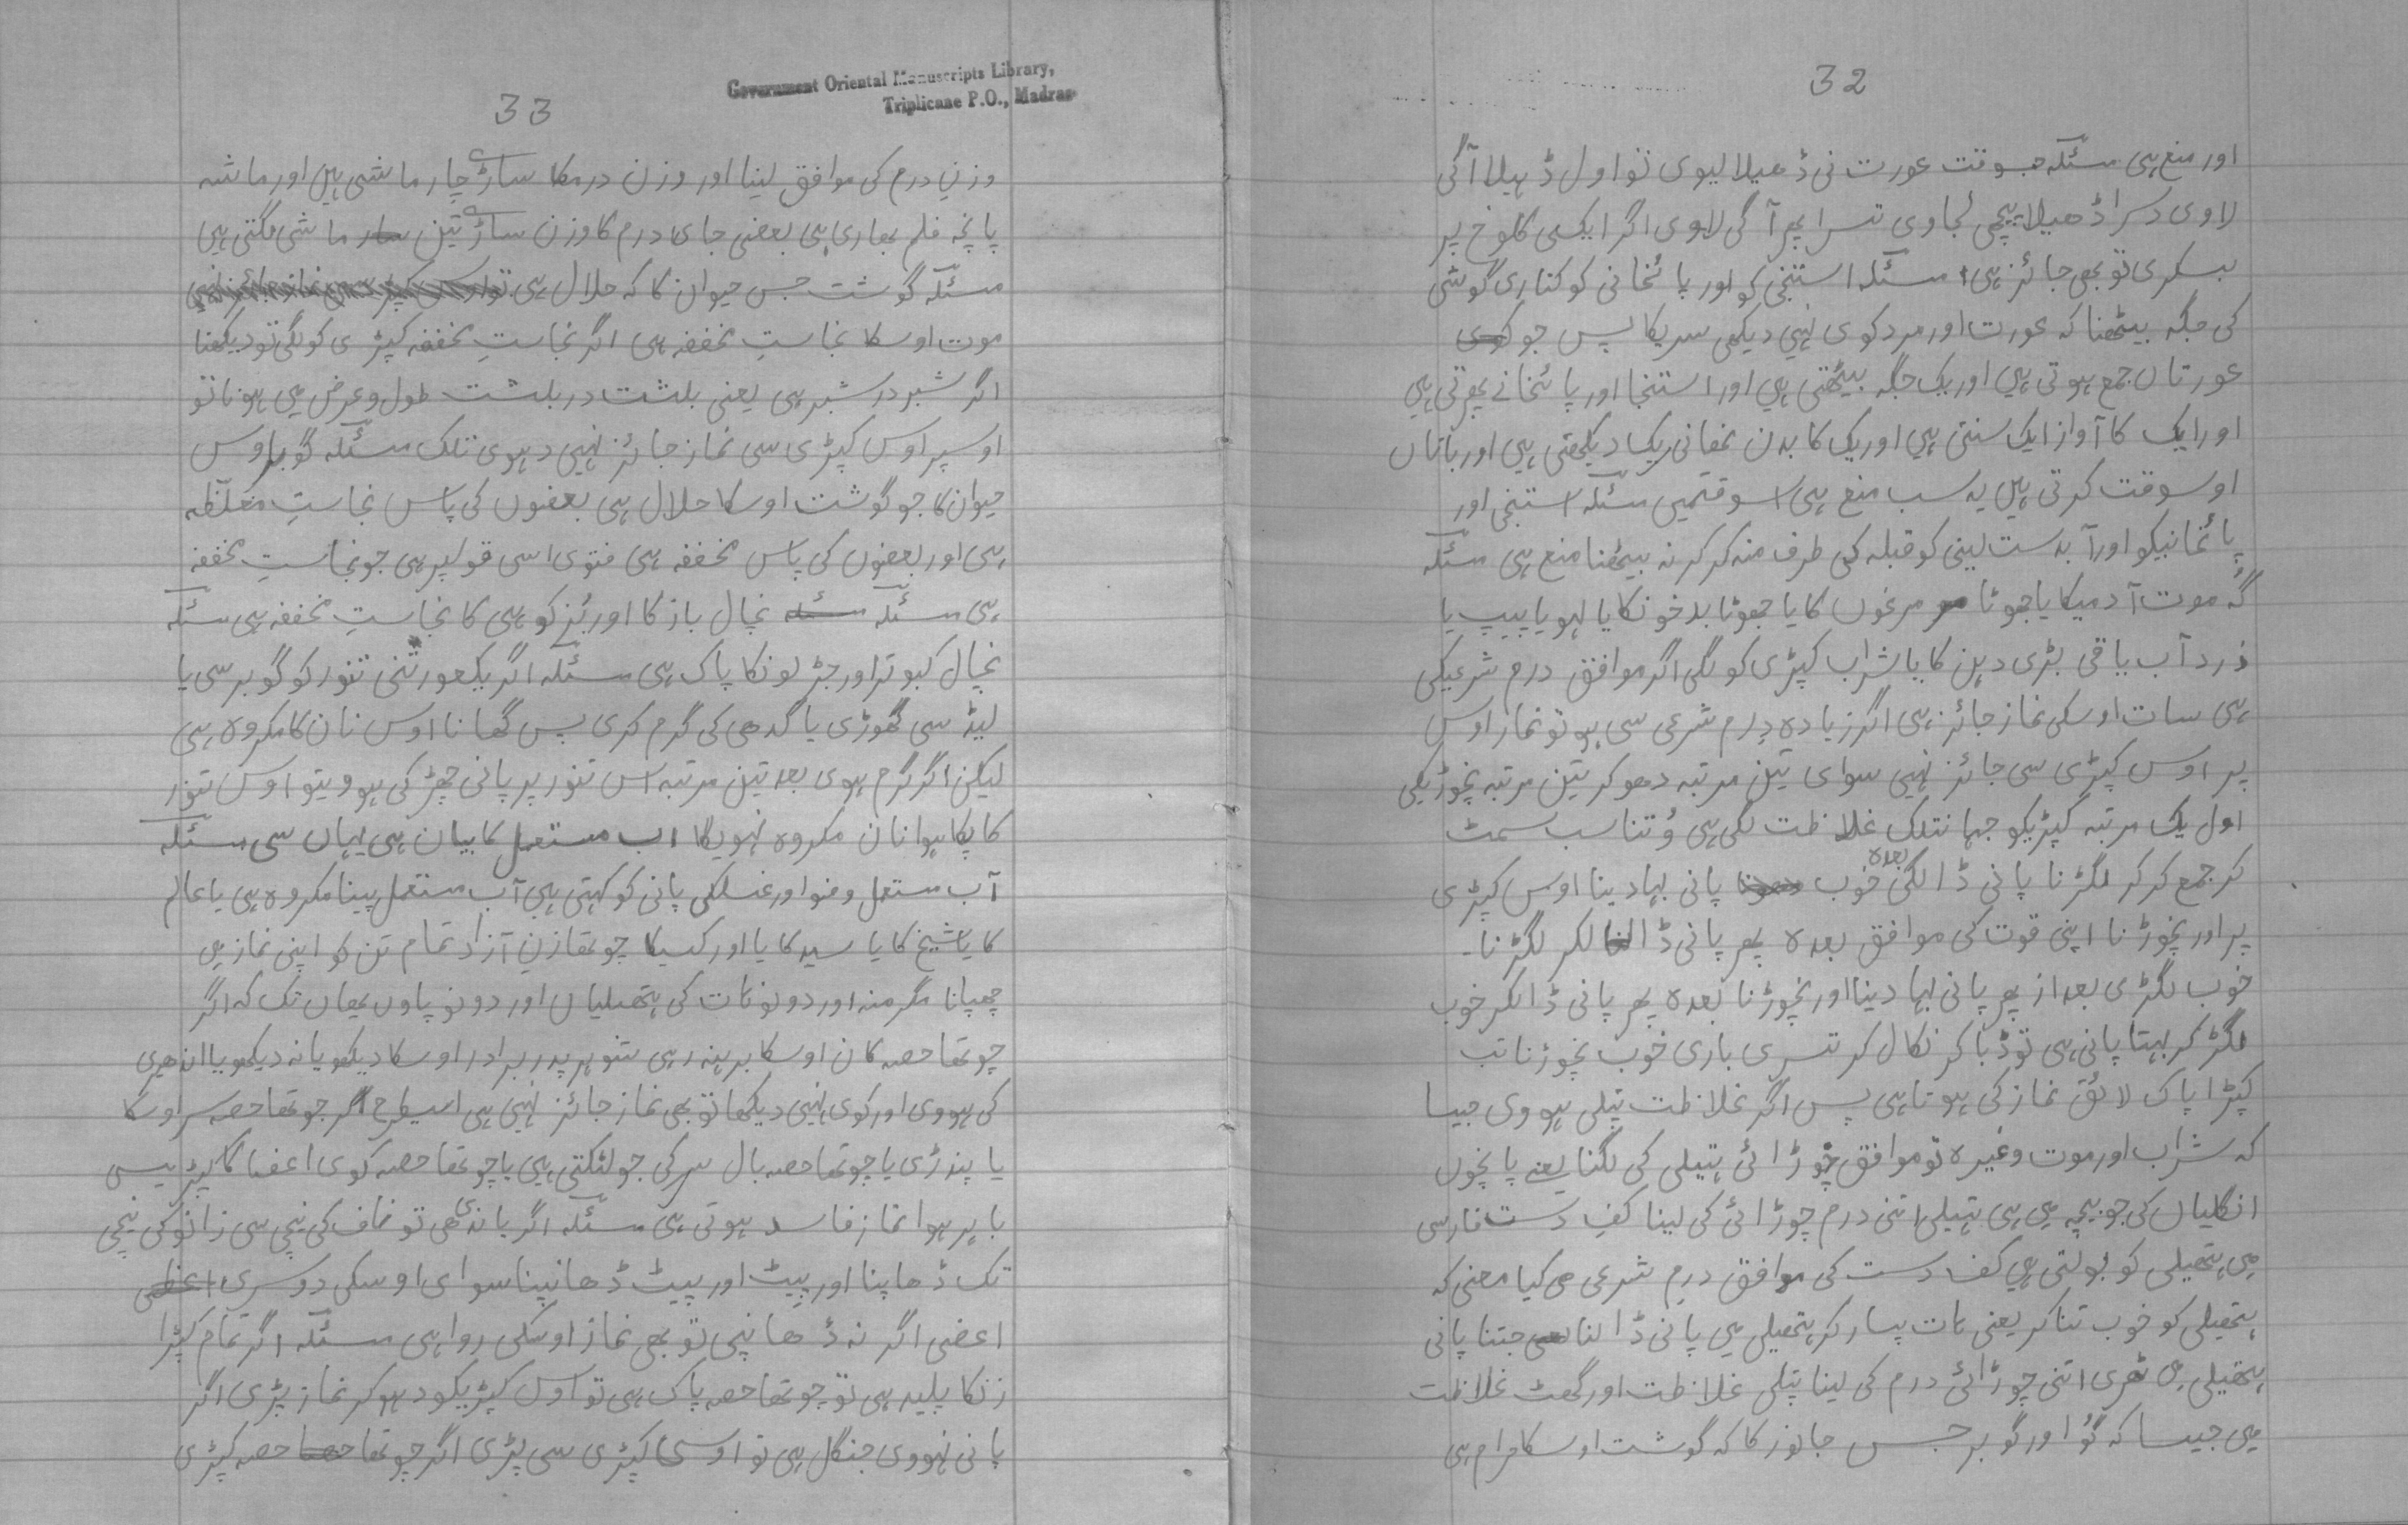 32
اور منع ہی مسئلہ جسوقت عورت نی ڈھیلا لیوی تو اول ڈہیلا آگی
لاوی دسرا ڈھیلا پیچھی لجاوی تسرا پھر آگی لاوی اگر ایکسی کلوخ پر
بسکری تو بھی جائز ہی مسئلہ استنجی کو اور پائخانی کو کناری گوشی
کی جگہ بیٹھنا کہ عورت اور مرد کوی نہیں دیکھی سریکا پس جو کوی
عورتاں جمع ہوتی ہیں اور یک جگہ بیٹھتی ہیں اور استنجا اور پائخانے پھرتی ہیں
اور ایک کا آواز ایک سنتی ہیں اور یک کا بدن نفانی یک دیکھتی ہیں اور باتاں
اوسوقت کرتی ہیں یہ سب منع ہی اسوقتمیں مسئلہ استنجی اور
پائخانیکو اور آبدست لینی کو قبلہ کی طرف منہ کر کر نہ بیٹھنا منع ہی مسئلہ
گہ موت آدمیکا یا جھوٹا مرغوں کا یا جھوٹا بدخونکا یا لہو یا پیپ یا
زرد آب یا قی بڑی دہن کا یا شراب کپڑی کو لگی اگر موافق درم شرعیکی
ہی سات اوسکی نماز جائز ہی اگر زیادہ درم شرعی سی ہو تو نماز اوس
پر اوس کپڑی سی جائز نہیں سوای تین مرتبہ دھو کر تین مرتبہ نچوڑیکی
اول یک مرتبہ کپڑیکو جہانتلک غلاظت لگی ہی وُتنا سب سمٹ
کر جمع کر کر لگڑنا پانی ڈالکی خوب بعدہ پانی بہا دینا اوس کپڑی
پر اور نچوڑنا اپنی قوت کی موافق بعدہ پھر پانی ڈالکر لگڑنا۔
خوب لگڑی بعد از پھر پانی بہا دینا اور نچوڑنا بعدہ پھر پانی ڈالکر خوب
لگڑ کر بہتا پانی ہی تو ڈباکر نکال کر تسری باری خوب نچوڑنا تب
کپڑا پاک لائق نماز کی ہوتا ہی پس اگر غلاظت پتلی ہووی جیسا
کہ شراب اور موت وغیرہ تو موافق چوڑائی ہتیلی کی لگنا یعنے پانچوں
انگلیاں کی جو بیچہ میں ہی ہتیلی اتنی درم چوڑائی کی لینا کفِ دست فارسی
میں ہتھیلی کو بولتی ہیں کف دست کی موافق درم شرعی می کیا معنی کہ
ہتھیلی کو خوب تناکر یعنی ہات پسار کر ہتھیلی میں پانی ڈالنا جتنا پانی
ہتھیلی میں ٹھری اتنی چوڑائی درم کی لینا پتلی غلاظت اور گھٹ غلاظت
میں جیسا کہ گُو اور گوبر جس جانور کا کہ گوشت اوسکا حرام ہی
Government Oriental Manuscripts Library,
Triplicane P.O., Madras
33
وزنِ درم کی موافق لینا اور وزن درمکا ساڑے چار ماشی ہیں اور ماشہ
پانچہ فلم بھاری ہی بعضی جای درم کا وزن ساڑے تین ماشی لگتی ہیں
مسئلہ گوشت جس حیوان کا کہ حلال ہی
موت اوسکا نجاستِ مخففہ ہی اگر نجاستِ مخففہ کپڑی کو لگی تو دیکھنا
اگر شبر در شبر ہی یعنی بلشت در بلشت طول و عرض میں ہونا تو
اوسپر اوس کپڑی سی نماز جائز نہیں دہوی تلک مسئلہ گوبر اوس
حیوان کا جو گوشت اوسکا حلال ہی بعضوں کی پاس نجاستِ مغلّظہ
ہی اور بعضوں کی پاس مخففہ ہی فتویٰ اسی قولپر ہی جو نجاستِ مخففہ
ہی مسئلہ نچال باز کا اور بُز کو ہی کا نجاستِ مخففہ ہی مسئلہ
نچال کبوتر اور چڑلونکا پاک ہی مسئلہ اگر یکعورتنی تنور کو گوبر سی یا
لیڑ سی گھوڑی یا گدھی کی گرم کری پس کھانا اوس نان کا مکروہ ہی
لیکن اگر گرم ہوی بعد تین مرتبہ اس تنور پر پانی چھڑکی ہوویتو اوس تنور
کا پکا ہوا نان مکروہ نہویگا اب مستعمل کا بیان ہی یہاں سی مسئلہ
آب مستعمل وضو اور غسلکی پانی کو کہتی ہیں آب مستعمل پینا مکروہ ہی یا عالم
کا یا شیخ کا یا سید کا یا اور کسیکا چوتھا زنِ آزاد تمام تن کو اپنی نماز میں
چھپانا مگر منہ اور دونو ہات کی ہتھیلیاں اور دونو پاوں یھاں تک کہ اگر
چوتھا حصہ کان اوسکا برہنہ رہی شوہر پدر برادر اوسکا دیکھو یا نہ دیکھو یا اندھیری
کی ہووی اور کوی نہیں دیکھا تو بھی نماز جائز نہیں ہی اسیطرح اگر چوتھا حصہ سر اوسکا
یا پنڈڑی یا چوتھا حصہ بال سر کی جو لٹکتی ہیں یا چوتھا حصہ کوی اعضا کا کپڑیسی
باہر ہوا نماز فاسد ہوتی ہی مسئلہ اگر باندی ھی تو ناف کی نیچی سی زانو کی نیچی
تک ڈھاپنا اور پیٹ اور پیٹ ڈھانپنا سوای اوسکی دوسری
اعضی اگر نہ ڈھانپی تو بھی نماز اوسکی روا ہی مسئلہ اگر تمام کپڑا
زنکا پلید ہی تو چوتھا حصہ پاک ہی تو اوس کپڑیکو دہو کر نماز پڑی اگر
پانی نہووی جنگل ہی تو اوسی کپڑی سی پڑی اگر چوتھا حصہ کپڑی